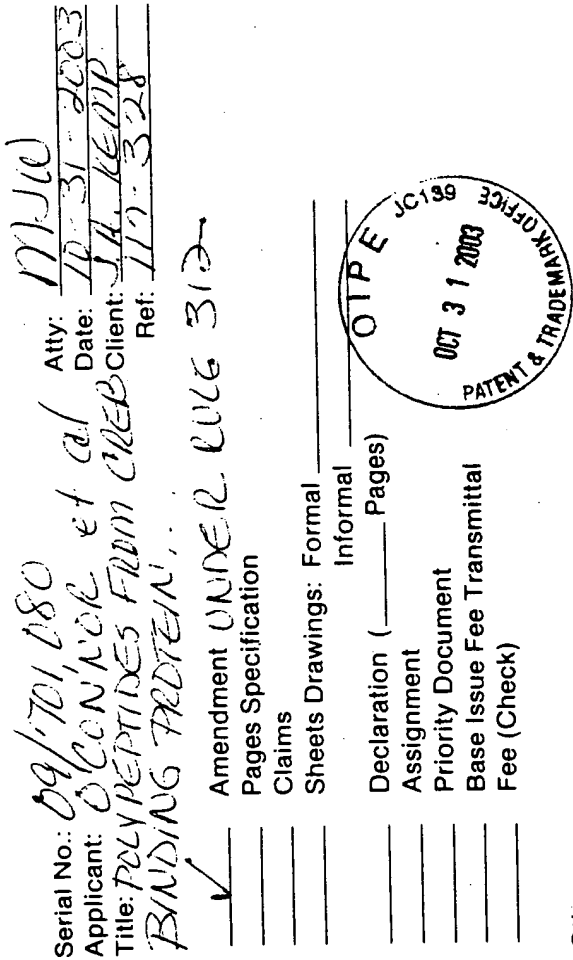 Serial No.: 09/701,080 Atty: MJW
Applicant: O'CONNOR et al Date: 10-31-2003
Title: POLYPEPTIDES FROM CREB Client: J.A. KEMP
BINDING PROTEIN... Ref: 117-328
✓ Amendment UNDER RULE 312
Pages Specification
Claims
Sheets Drawings: Formal
Informal
Declaration (____ Pages)
Assignment
Priority Document
Base Issue Fee Transmittal
Fee (Check)
OIPE JC139
OCT 3 1 2003
PATENT & TRADEMARK OFFICE